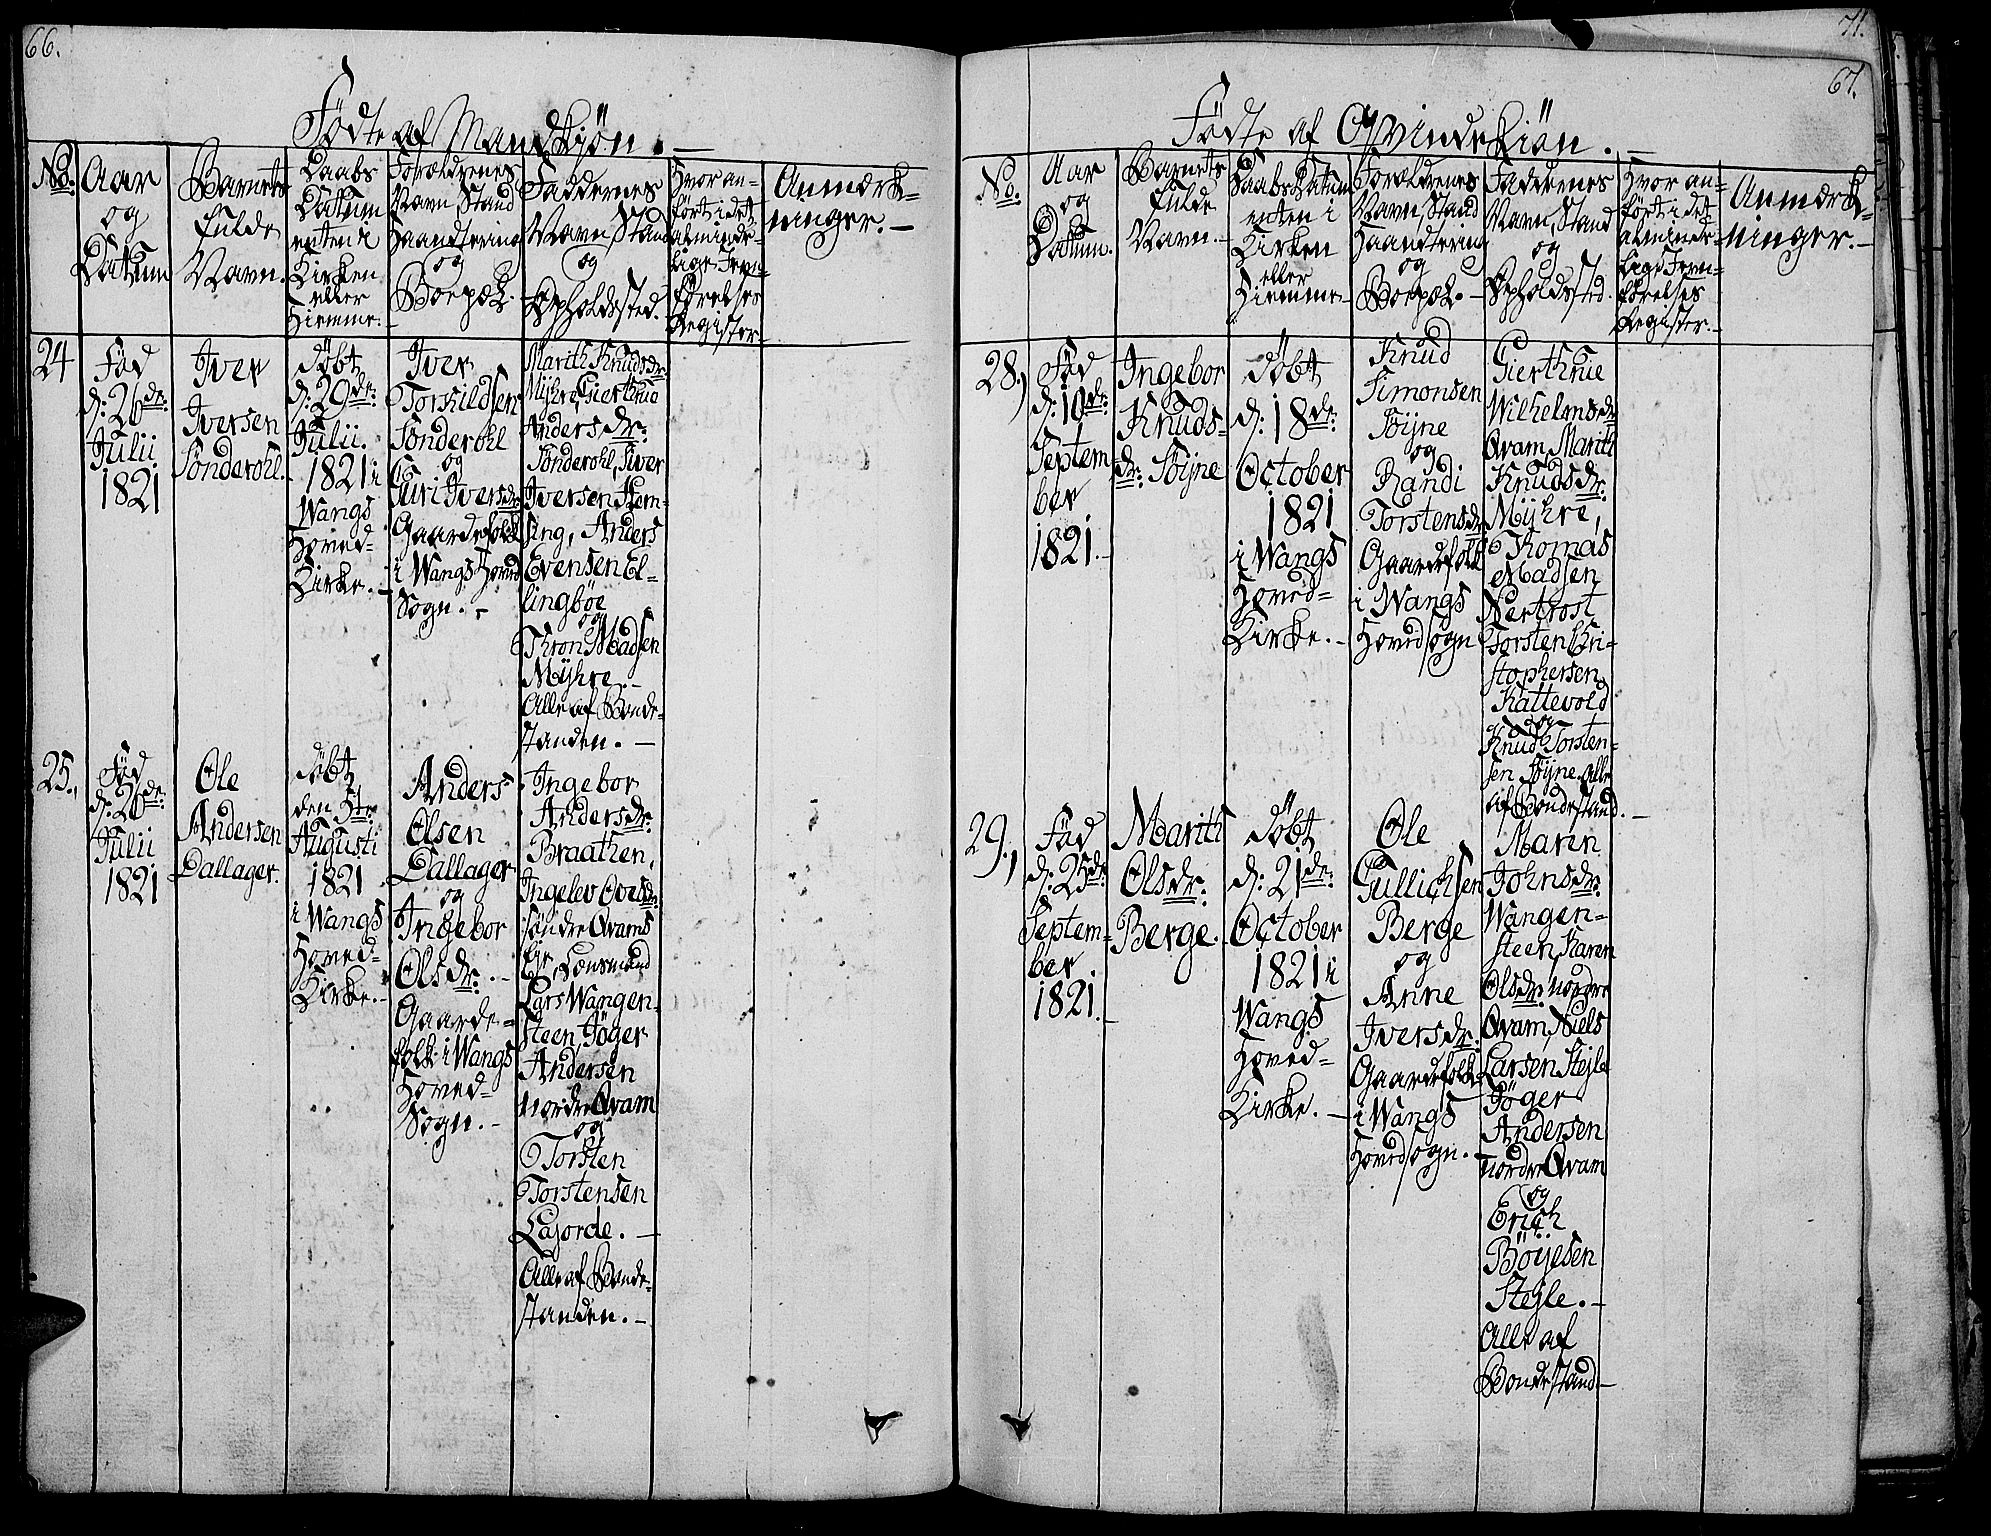 66.
Födte af Mandkjön. —
No.
Aar
og
Datum
Barnets
fulde
Navn.
Daabs
Datum
enten i
Kirken
eller
Hiemme.
Forældrenes
Navn, Stand
Haandtering
og
Boepæl.
Faddernes
Navn, Stand
og
Opholdssted.
Hvor an-
fört i det
alminde-
lige Jevn-
förelses
Register.
Anmærk-
ninger. —
24
Föd
d: 26de
Julii
1821
Iver
Iversen
Sönderohl.
döbt
d: 29de:
Julii.
1821 i
Wangs
Hoved-
Kirke. —
Iver
Torkildsen
Sönderohl
og
Guri Iversdr.
Gaardefolk
i Wangs Hoved
Sogn. —
Marith Knudsdr.
Myhre, Gierthrue
Andersdr.
Sönderohl, Siver
Iversen Hem-
sing, Anders
Evensen El-
lingböe
og
Thron Madsen
Myhre. —
Alle af Bonde-
standen. —
25.,
Föd
d: 26de:
Julii
1821
Ole
Andersen
Dallager.
döbt
den 5te:
Augusti
1821
i Wangs
Hoved-
Kirke. —
Anders
Olsen
Dallager
og
Ingebor
Olsdr. —
Gaarde-
folk i Wangs
Hoved-
Sogn. —
Ingebor
Andersdr.
Braathen,
Ingelev Ovesdr.
söndre Qvams
Eje, Lensmand
Lars Wangen-
steen, Jöger
Andersen
nordre Qvam
og
Torsten
Torstensen
Lajorde. —
Alle af Bonde-
standen. —
71.
67.
Födte af Qvindekiön. —
No.
Aar
og
Datum.
Barnets
fulde
Navn. —
Daabs Datum
enten i
Kirken
eller
Hiemme —
Forældrenes
Navn, Stand
Haandtering
og
Boepæl. —
Faddernes
Navn, Stand
og
Opholdssted.
Hvor an-
fört i det
alminde-
lige Jevn-
förelses
Register. —
Anmærk-
ninger. —
28.,
Föd
d: 10de
Septem-
ber
1821. —
Ingebor
Knuds-
dr. Söyne
döbt
d: 18de:
October
1821
i Wangs
Hoved-
Kirke. —
Knud
Simonsen
Söyne
og
Randi
Torstensdr.
Gaardefolk
i Wangs
Hovedsogn
Gierthrue
Wilhelmsdr.
Qvam, Marith
Knudsdr.
Myhre,
Thomas
Madsen
Nertrost
Torsten Chri-
stophersen
Kattevold
og
Knud Torsten-
sen Söyne. Alle
af Bondestand. —
29.,
Föd
d: 25de
Septem-
ber.
1821. —
Marith
Olsdr.
Berge.
döbt
d: 21de:
October
1821 i
Wangs
Hoved-
Kirke. —
Ole
Gullichsen
Berge
og
Anne
Iversdr.
Gaardefolk
i Wangs
Hovedsogn. —
Maren
Johnsdr.
Wangen-
steen, Karen
Olsdr. nordre
Qvam, Niels
Larsen Stejle
Jöger
Andersen
nordre Qvam
og
Erich
Böyesen
Stejle. —
Alle af
Bondestand —